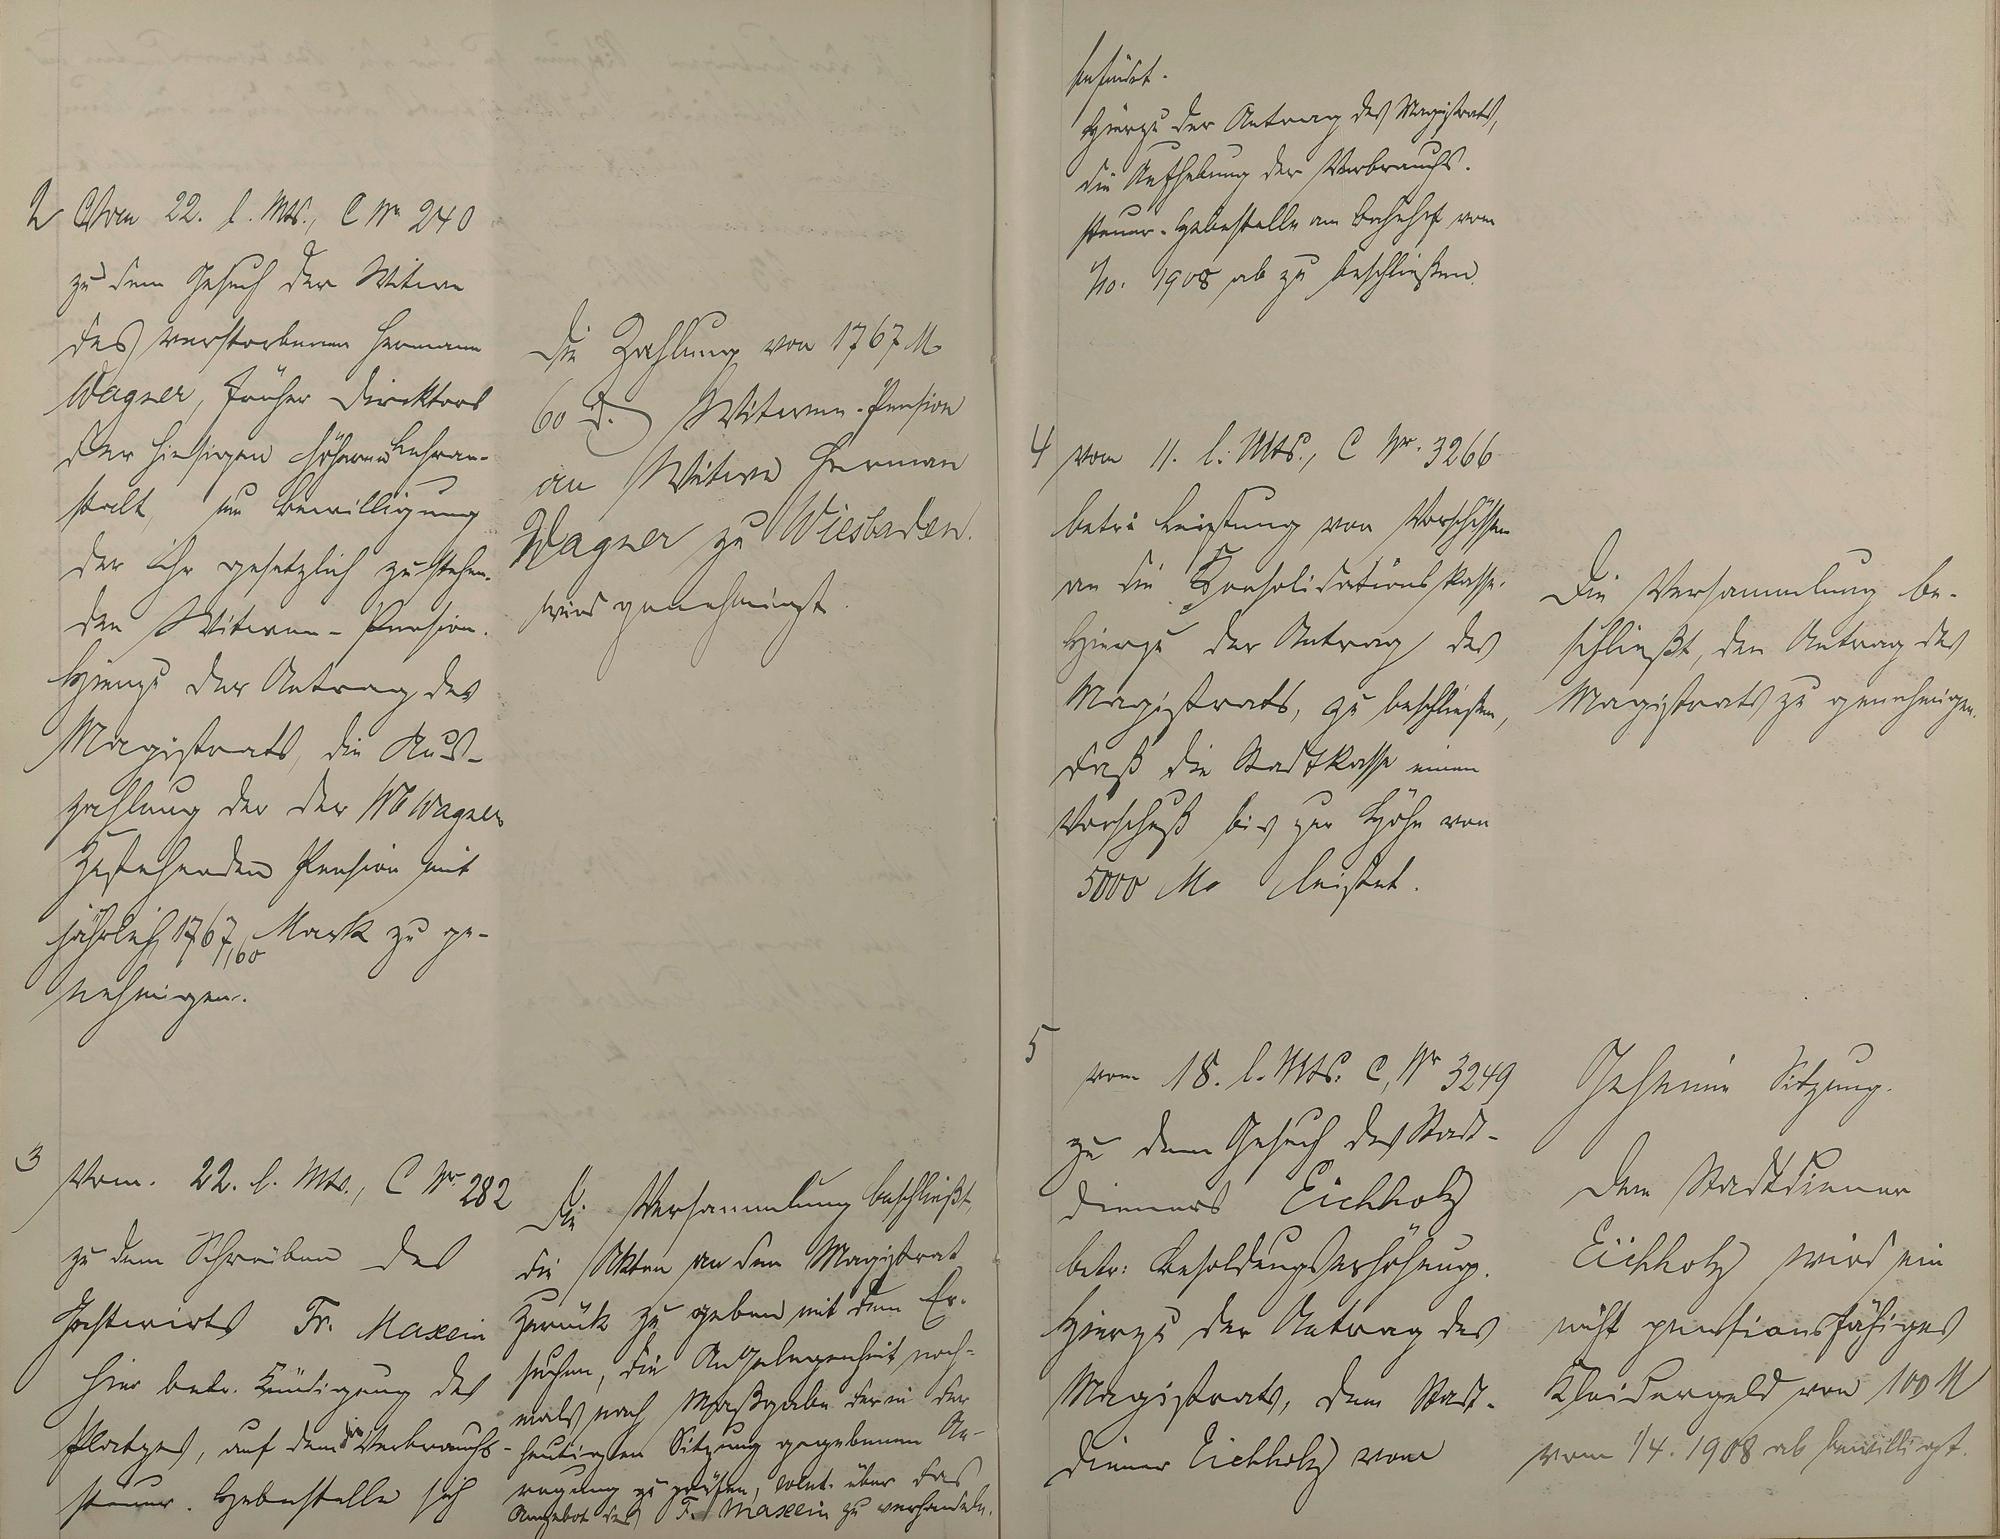 2 Vom 22. l. Mts., C Nr 240
zu dem Gesuch der Witwe
des verstorbenen Hermann
Wagner, früher Direktors
der hiesigen höheren Lehran-
stalt, um Bewilligung
der ihr gesetzlich zustehen-
den Witwen-Pension.
Hierzu der Antrag des
Magistrats, die Aus-
zahlung der der Ww Wagner
zustehenden Pension mit
jährlich 1767,60 Mark zu ge-
nehmigen.
Die Zahlung von 1767 M
60 d. Witwen-Pension
an Witwe Herman
Wagner zu Wiesbaden.
wird genehmigt.
3 Vom. 22. l. Mts., C Nr 282
zu dem Schreiben des
Gastwirts Fr. Maxein
hier betr. Kündigung des
Platzes, auf dem die Verbrauchs-
steuer-Hebestelle sich
Die Versammlung beschließt,
die Akten an den Magistrat
zurück zu geben mit dem Er-
suchen, die Angelegenheit noch-
mals nach Maßgabe der in der
heutigen Sitzung gegebenen An-
regung zu prüfen, event. über das
Angebot des Fr. Maxein zu verhandeln.
befindet.
Hierzu der Antrag des Magistrats,
die Aufhebung der Verbrauchs-
steuer-Hebestelle am Bahnhof vom
1/10. 1908 ab zu beschließen.
4 vom 11. l. Mts., C Nr. 3266
betr: Leistung von Vorschüssen
an die Konsolidationskasse.
Hierzu der Antrag des
Magistrats, zu beschließen,
daß die Stadtkasse einen
Vorschuß bis zur Höhe von
5000 M leistet.
Die Versammlung be-
schließt, den Antrag des
Magistrats zu genehmigen.
5 vom 18. l. Mts. C, Nr 3249
zu dem Gesuch des Stadt-
dieners Eichholz
betr: Besoldungserhöhung.
Hierzu der Antrag des
Magistrats, dem Stadt-
diener Eichholz vom
Geheime Sitzung.
Dem Stadtdiener
Eichholz wird ein
nicht pensionsfähiges
Kleidergeld von 100 M
vom 1/4. 1908 ab bewilligt.